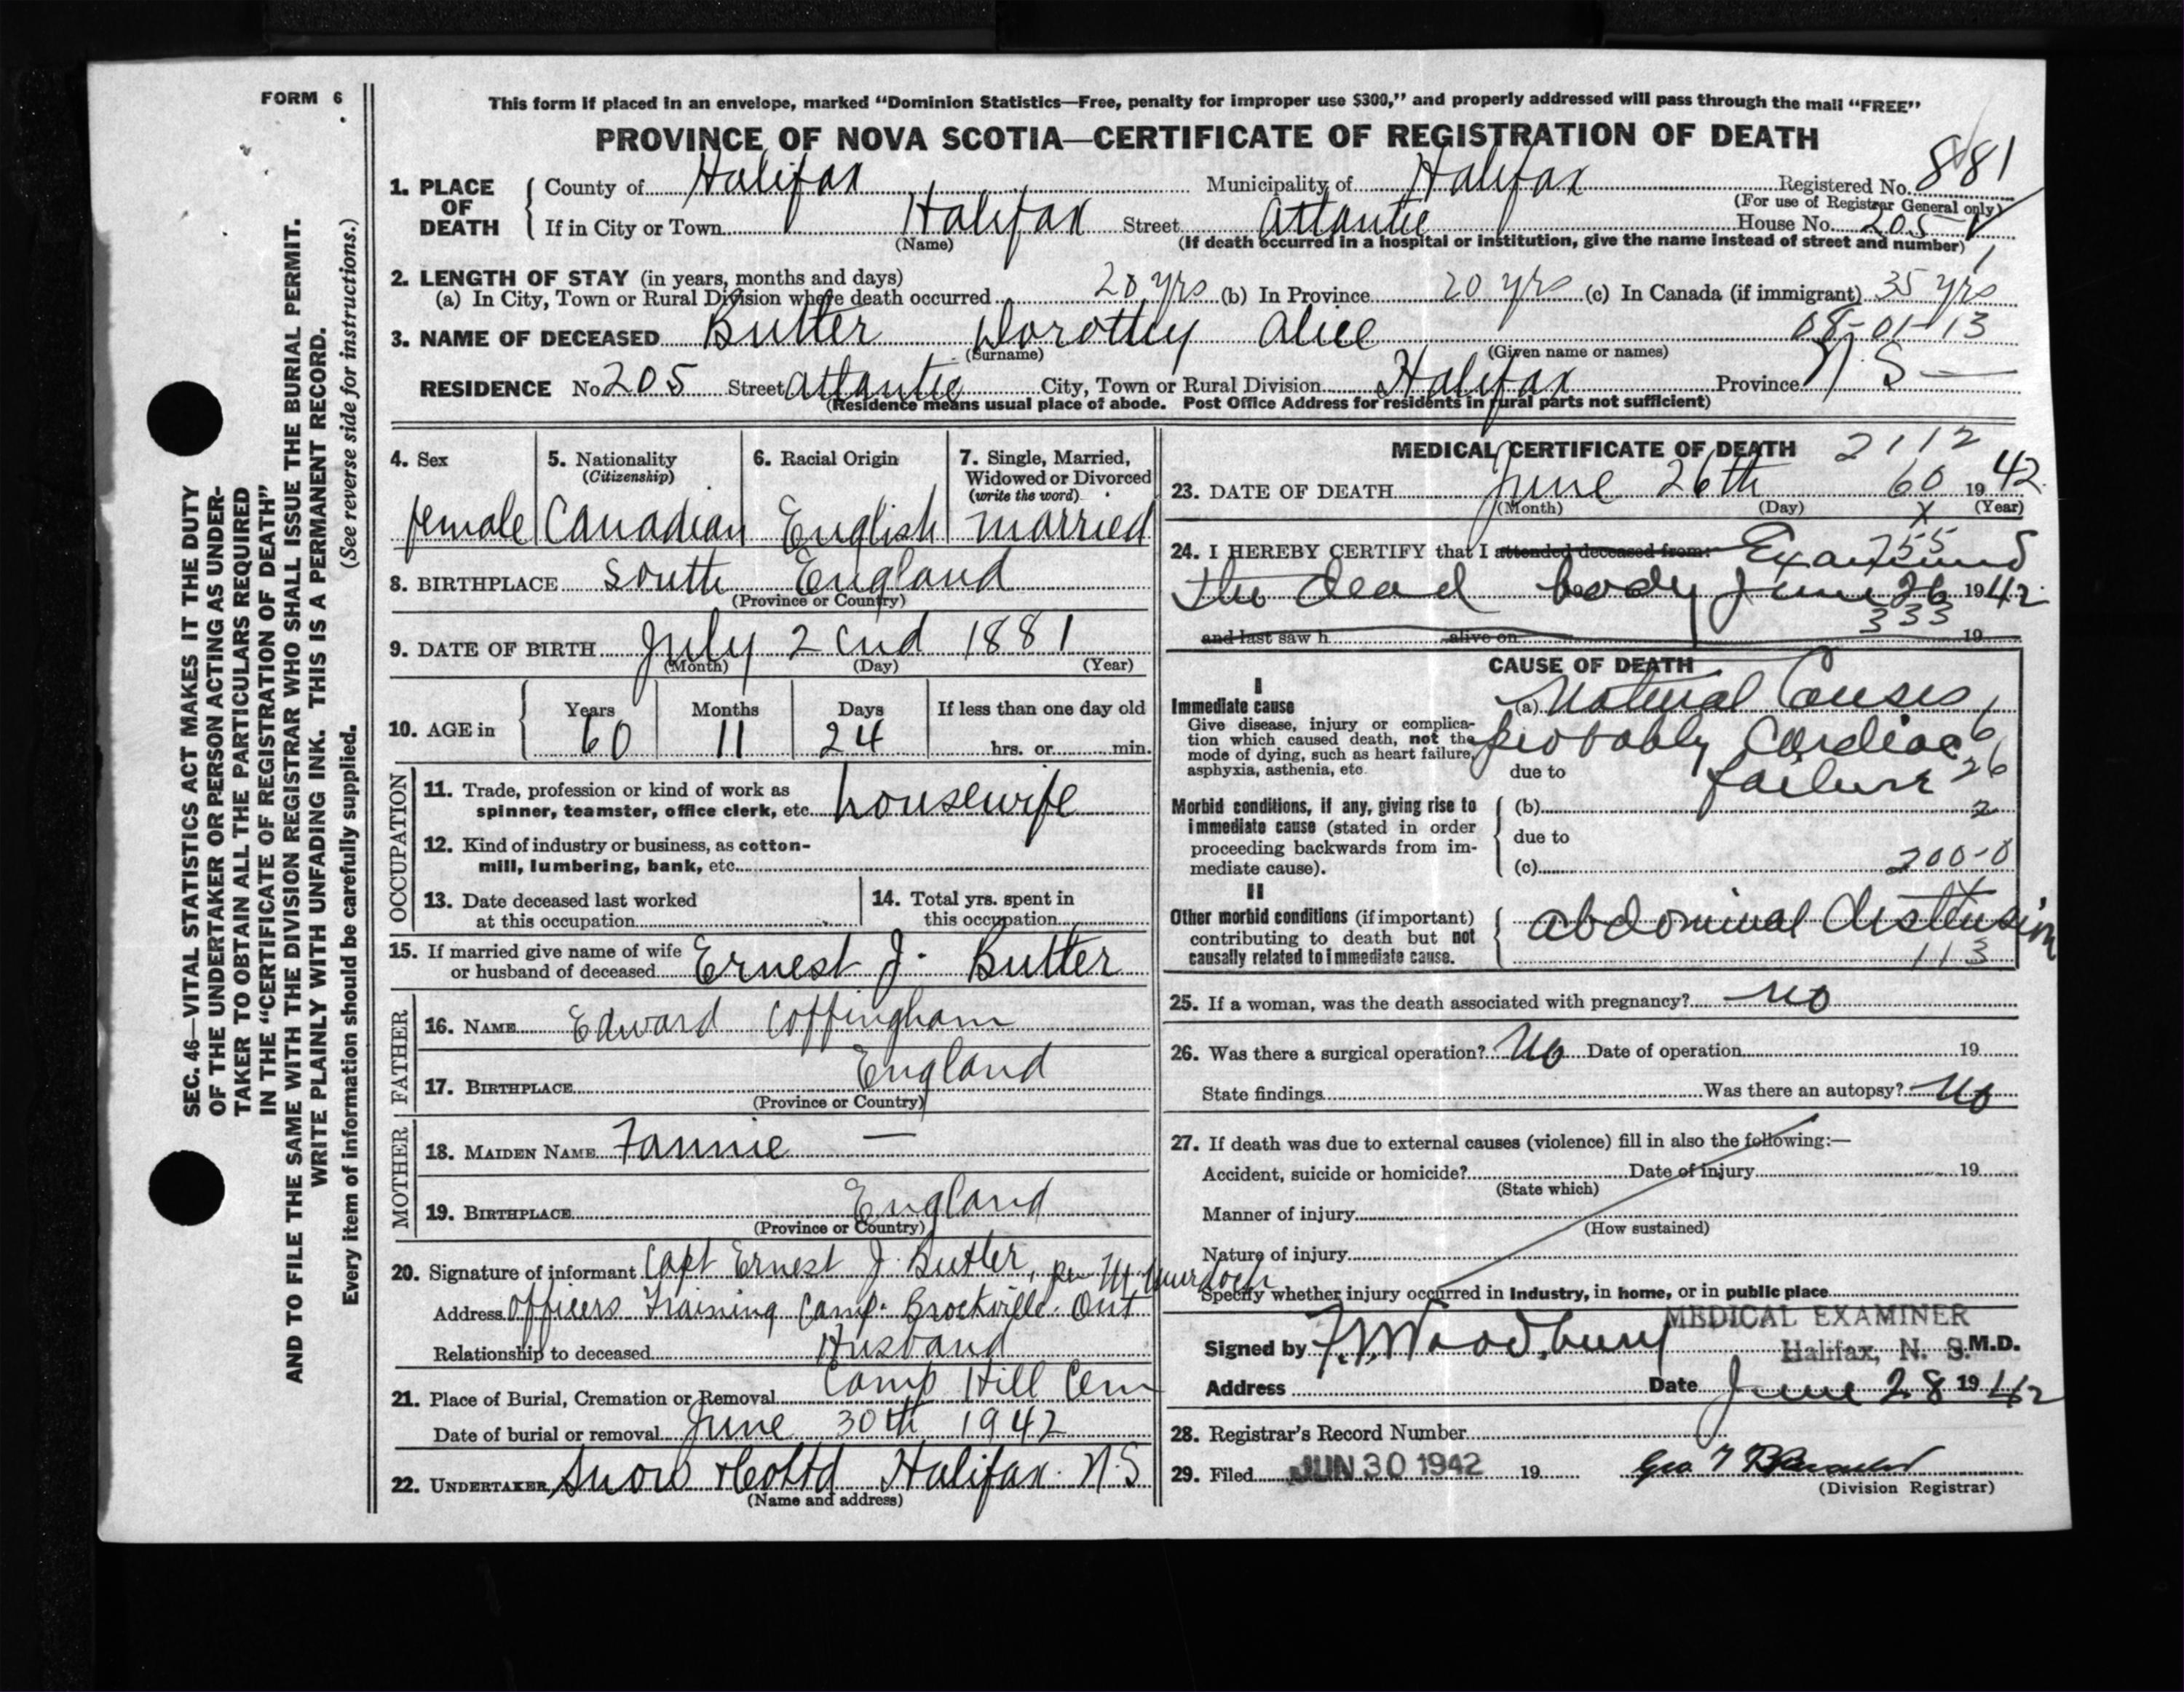 FORM 6
This form if placed in an envelope, marked “Dominion Statistics—Free, penalty for improper use $300,” and properly addressed will pass through the mail “FREE”
PROVINCE OF NOVA SCOTIA—CERTIFICATE OF REGISTRATION OF DEATH
SEC. 46—VITAL STATISTICS ACT MAKES IT THE DUTY
OF THE UNDERTAKER OR PERSON ACTING AS UNDER-
TAKER TO OBTAIN ALL THE PARTICULARS REQUIRED
IN THE “CERTIFICATE OF REGISTRATION OF DEATH”
AND TO FILE THE SAME WITH THE DIVISION REGISTRAR WHO SHALL ISSUE THE BURIAL PERMIT.
WRITE PLAINLY WITH UNFADING INK. THIS IS A PERMANENT RECORD.
Every item of information should be carefully supplied. (See reverse side for instructions.)
1. PLACE OF DEATH County of Halifax Municipality of Halifax Registered No. 881
(For use of Registrar General only)
If in City or Town Halifax Street Atlantic House No. 205
(Name) (If death occurred in a hospital or institution, give the name instead of street and number)
2. LENGTH OF STAY (in years, months and days)
(a) In City, Town or Rural Division where death occurred 20 yrs (b) In Province 20 yrs (c) In Canada (if immigrant) 35 yrs
08-01-13
3. NAME OF DECEASED Butler Dorothy Alice
(Surname) (Given name or names)
RESIDENCE No 205 Street Atlantic City, Town or Rural Division Halifax Province N.S
(Residence means usual place of abode. Post Office Address for residents in rural parts not sufficient)
4. Sex female
5. Nationality (Citizenship) Canadian
6. Racial Origin English
7. Single, Married, Widowed or Divorced (write the word) married
8. BIRTHPLACE South England
(Province or Country)
9. DATE OF BIRTH July 2cnd 1881
(Month) (Day) (Year)
10. AGE in Years 60 Months 11 Days 24 If less than one day old hrs. or min.
OCCUPATION
11. Trade, profession or kind of work as
spinner, teamster, office clerk, etc. housewife
12. Kind of industry or business, as cotton-
mill, lumbering, bank, etc.
13. Date deceased last worked
at this occupation
14. Total yrs. spent in
this occupation
15. If married give name of wife
or husband of deceased Ernest J. Butler
FATHER
16. NAME Edward Coffingham
17. BIRTHPLACE England
(Province or Country)
MOTHER
18. MAIDEN NAME Fannie —
19. BIRTHPLACE England
(Province or Country)
20. Signature of informant Capt Ernest J. Butler, per M Murdoch
Address Officers Training Camp. Brockville. Ont
Relationship to deceased Husband
21. Place of Burial, Cremation or Removal Camp Hill Cem
Date of burial or removal June 30th 1942
22. UNDERTAKER Snow & Co Ltd Halifax. N.S
(Name and address)
MEDICAL CERTIFICATE OF DEATH 2112
23. DATE OF DEATH June 26th 60 1942
(Month) (Day) (Year)
24. I HEREBY CERTIFY that I attended deceased from: Examined 755
the dead body June 26 1942
333
and last saw h alive on 19
CAUSE OF DEATH
I
Immediate cause
Give disease, injury or complica-
tion which caused death, not the
mode of dying, such as heart failure,
asphyxia, asthenia, etc.
(a) Natural Causes
probably Cardiac
due to failure
6
26
Morbid conditions, if any, giving rise to
immediate cause (stated in order
proceeding backwards from im-
mediate cause).
(b) 2
due to
(c) 200-0
II
Other morbid conditions (if important)
contributing to death but not
causally related to immediate cause.
abdominal distension
113
25. If a woman, was the death associated with pregnancy? no
26. Was there a surgical operation? No Date of operation 19
State findings Was there an autopsy? No
27. If death was due to external causes (violence) fill in also the following:—
Accident, suicide or homicide? Date of injury 19
(State which)
Manner of injury
(How sustained)
Nature of injury
Specify whether injury occurred in Industry, in home, or in public place
MEDICAL EXAMINER
Signed by F.V. Woodbury Halifax, N. S. M.D.
Address Date June 28 1942
28. Registrar's Record Number
29. Filed JUN 30 1942 19 Geo
(Division Registrar)